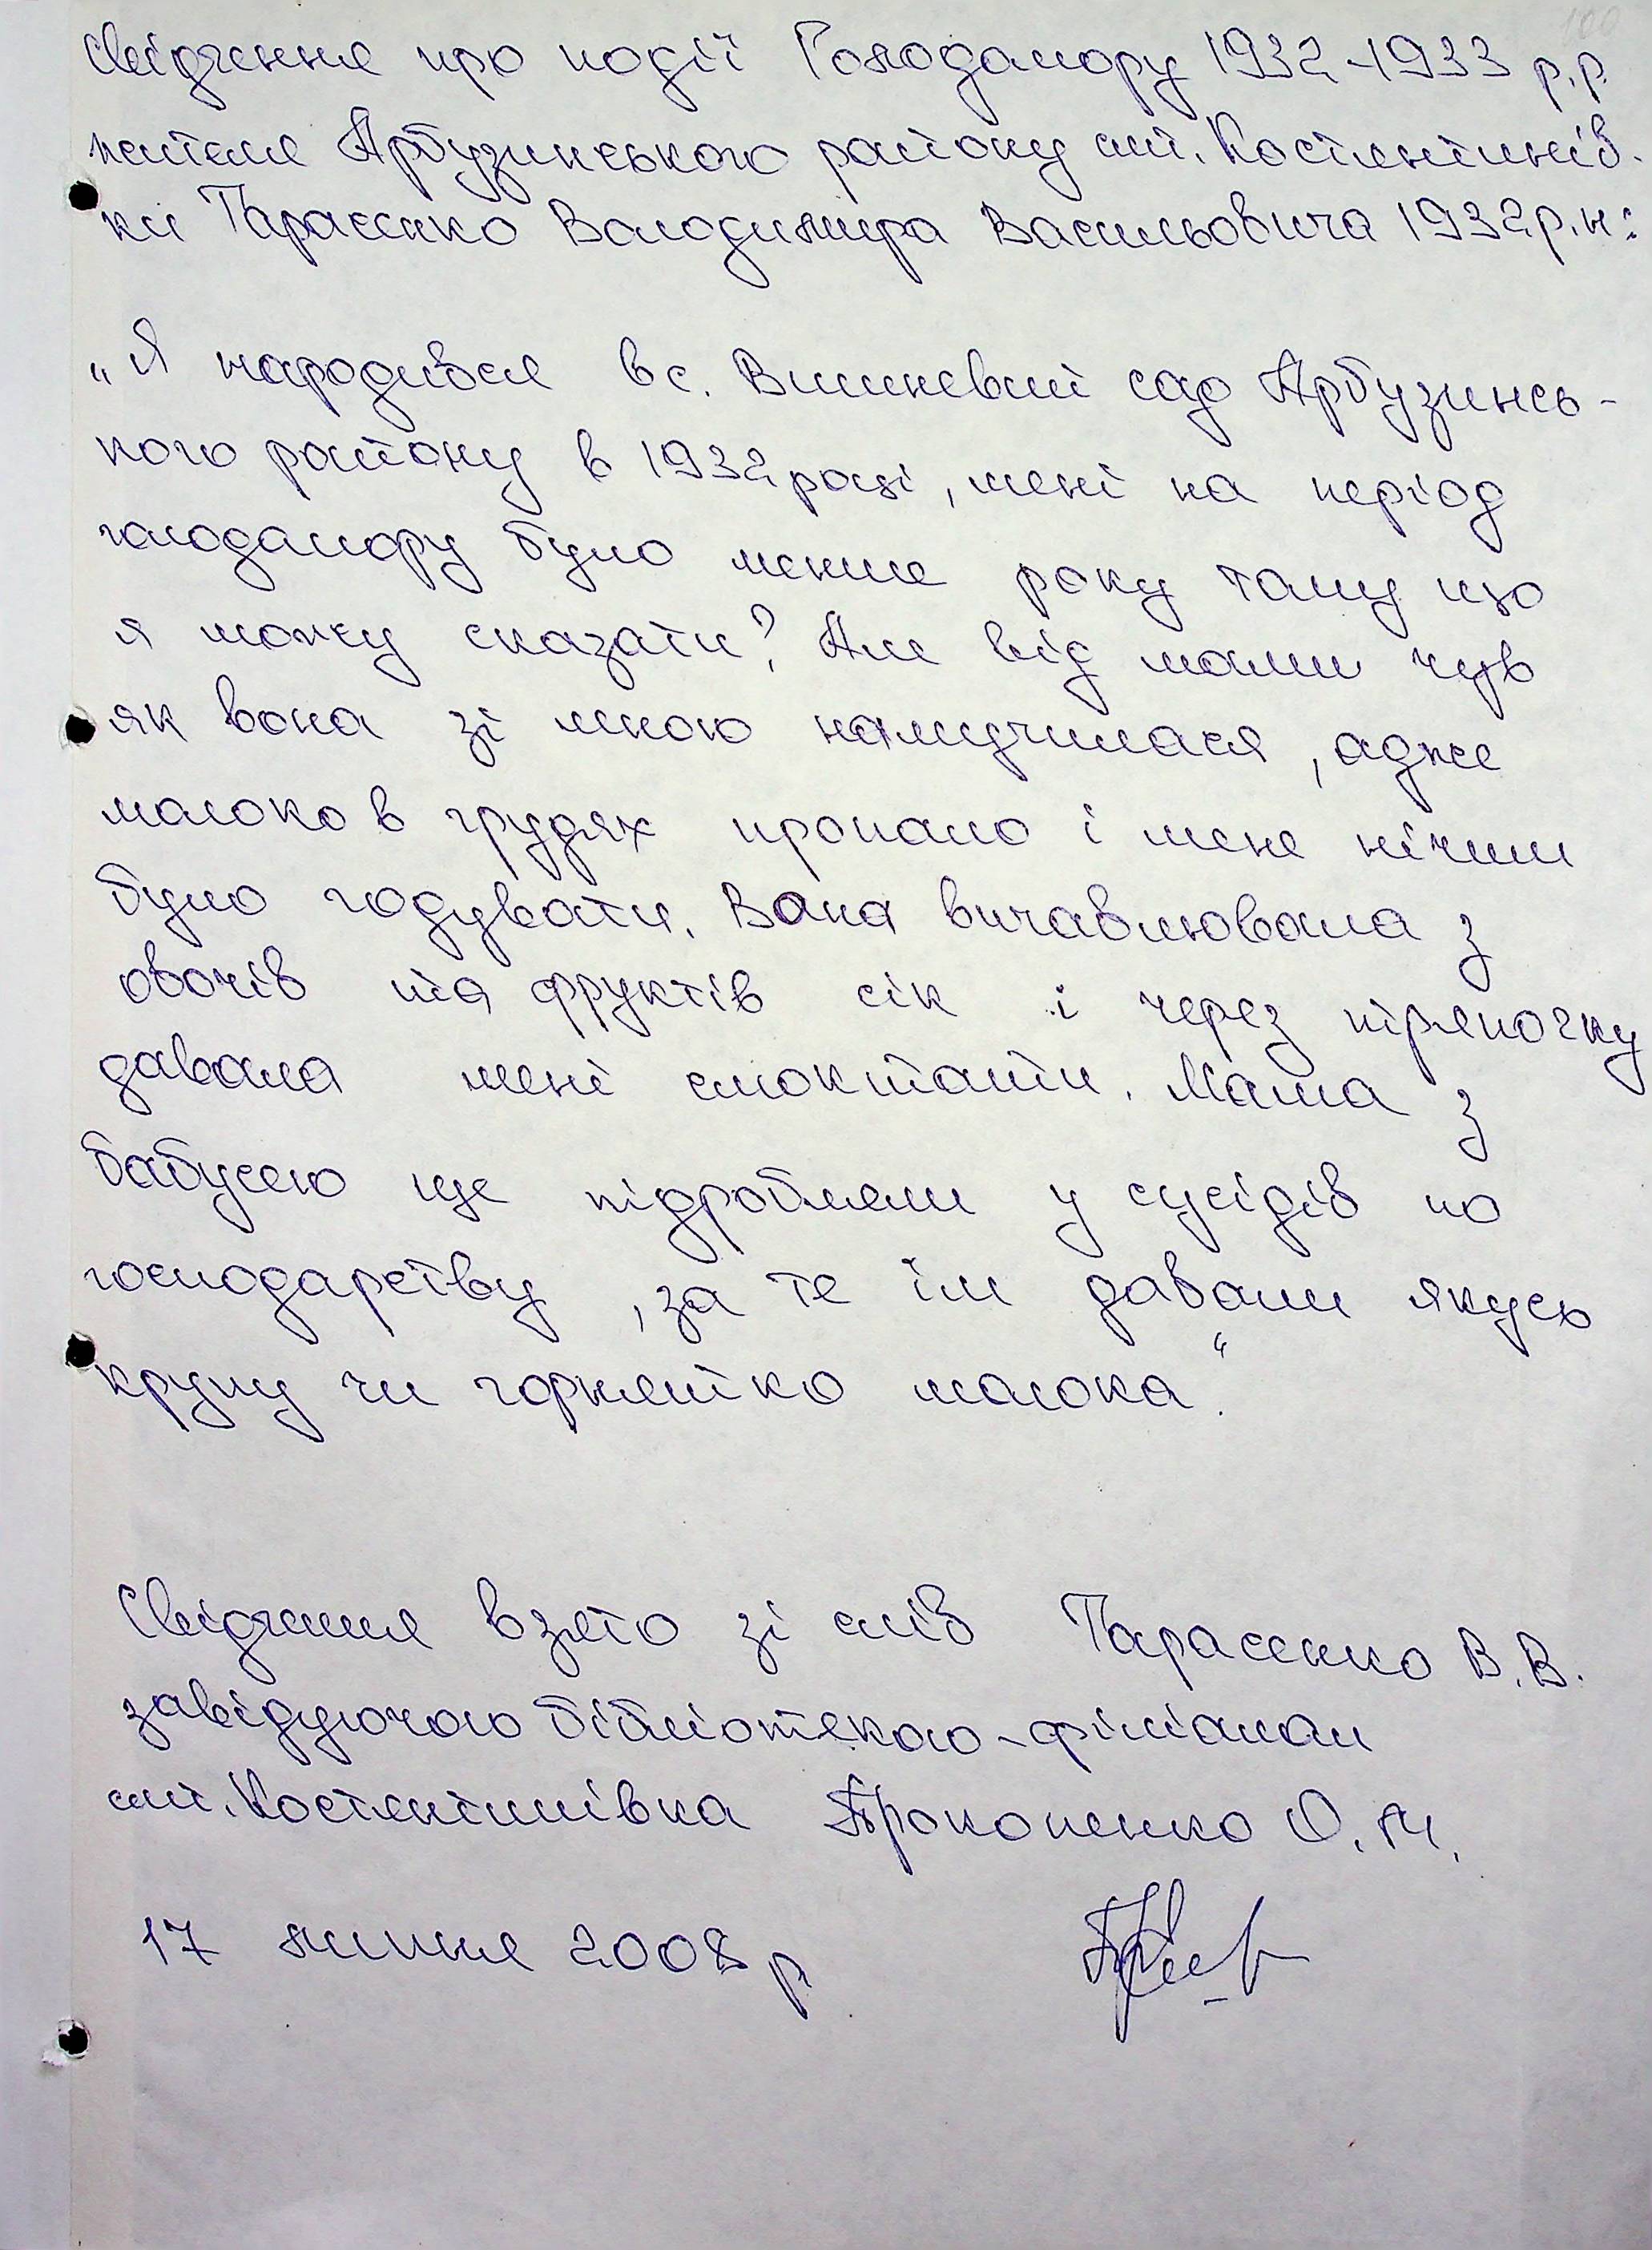 100
Свідчення про події Голодомору 1932-1933 р.р.
жителя Арбузинського району смт. Костянтинів-
ки Тараєнко Володимира Васильовича 1932р.н:
„Я народився в с. Вишневий сад Арбузинсь-
кого району в 1932 році, мені на період
голодомору було менше року тому що
я можу сказати? Але від мами чув
як вона зі мною намучилася, адже
молоко в грудях пропало і мене нічим
було годувати. Вона вичавлювала з
овочів та фруктів сік і через тряпочку
давала мені смоктати. Мама з
бабусею ще підробляли у сусідів по
господарству, за те їм давали якусь
крупу чи горнятко молока“.
Свідчення взято зі слів Тарасенко В.В.
завідуючою бібліотекою-філіалом
смт. Костянтинівка Прокопенко О.М.
17 липня 2008 р